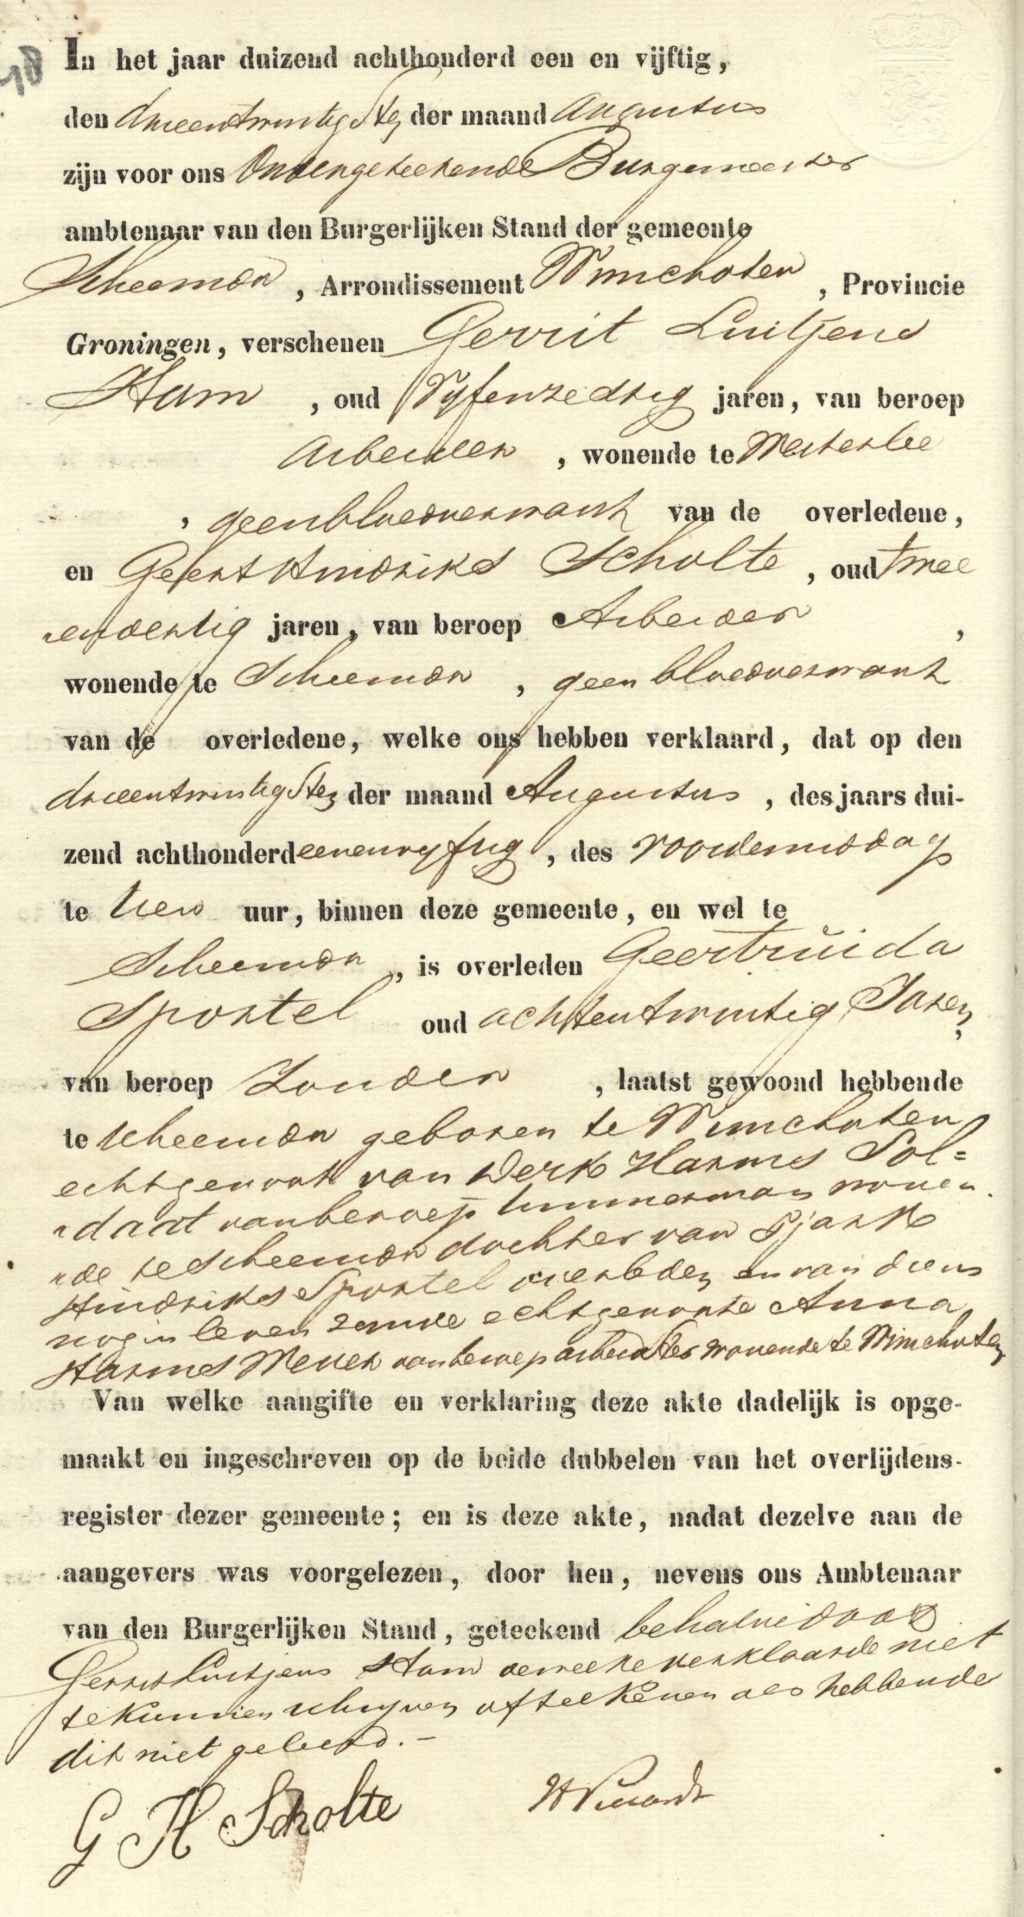 48
In het jaar duizend achthonderd een en vijftig,
den drieentwintigsten der maand Augustus
zijn voor ons Ondergeteekende Burgemeester
ambtenaar van den Burgerlijken Stand der gemeente
Scheemda, Arrondissement Winschoten, Provincie
Groningen, verschenen Gerrit Luitjens
Ham, oud Vyfenzestig jaren, van beroep
Arbeider, wonende te Westerlee
, geen bloedverwant van de overledene,
en Geert Hindriks Scholte, oud twee
endertig jaren, van beroep Arbeider,
wonende te Scheemda, geen bloedverwant
van de overledene, welke ons hebben verklaard, dat op den
drieentwintigsten der maand Augustus, des jaars dui-
zend achthonderd eenenvyftig, des voordemiddags
te tien uur, binnen deze gemeente, en wel te
Scheemda, is overleden Geertruida
Sportel oud achtentwintig Jaren,
van beroep Zonder, laatst gewoond hebbende
te Scheemda geboren te Winschoten
echtgenoot van Derk Harms Sol=
daat van beroep timmerman wonen
de te Scheemda dochter van Tjark
Hindriks Sportel overleden en van diens
nog in leven zynde echtgenoote Anna
Harms Meyer van beroep arbeidster wonende te Winschoten
Van welke aangifte en verklaring deze akte dadelijk is opge-
maakt en ingeschreven op de beide dubbelen van het overlijdens-
register dezer gemeente; en is deze akte, nadat dezelve aan de
aangevers was voorgelezen, door hen, nevens ons Ambtenaar
van den Burgerlijken Stand, geteekend behalve door
Gerrit Luitjens Ham dewelke verklaarde niet
te kunnen schryven of teekenen als hebbende
dit niet geleerd.-
G H Scholte